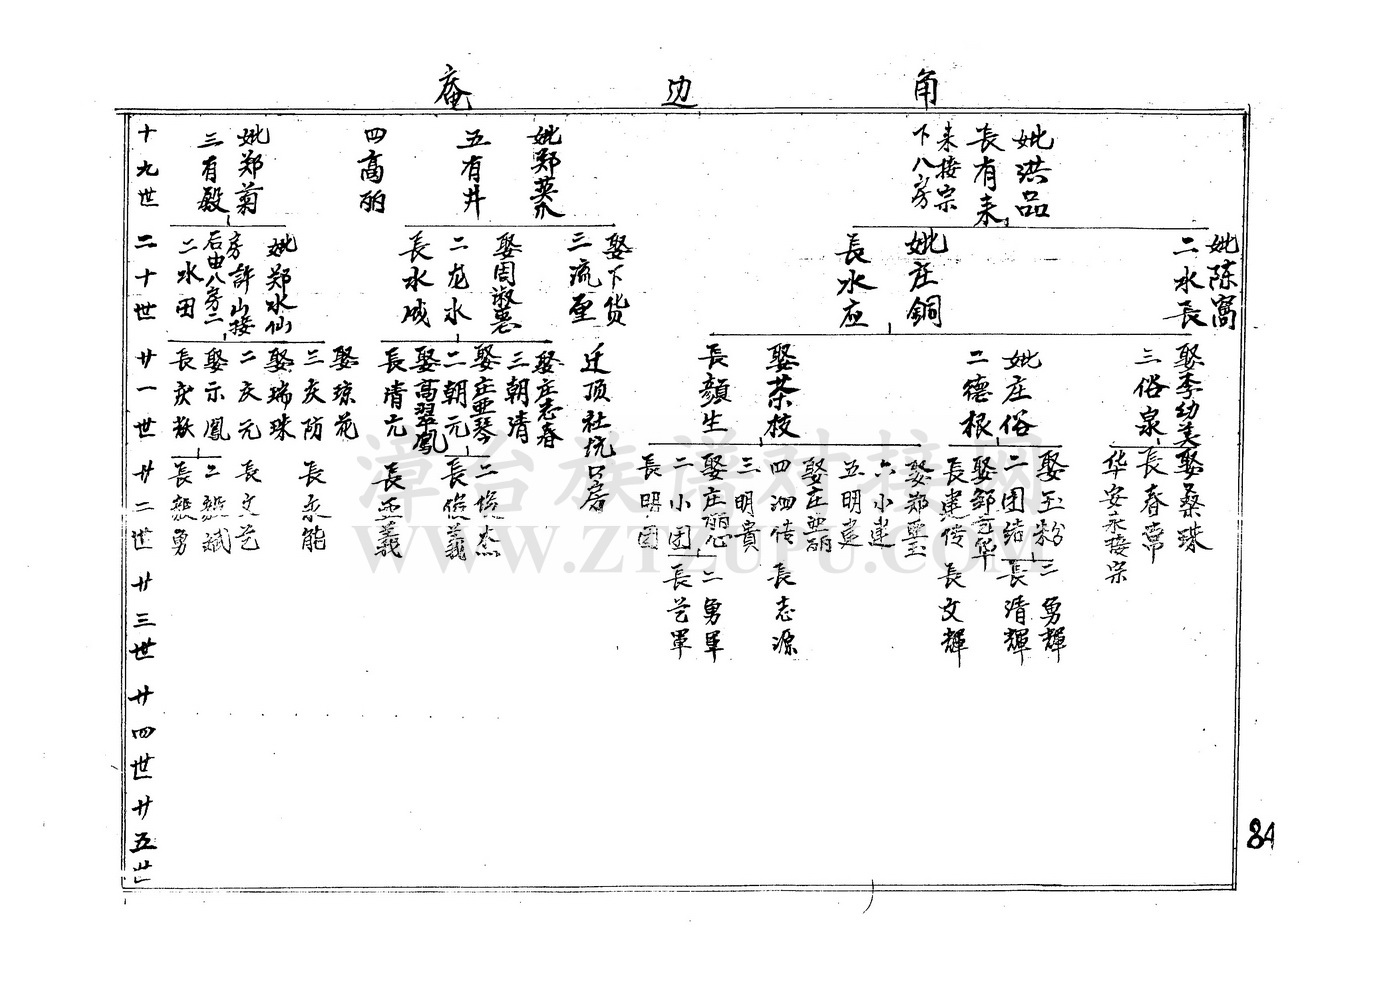 庵边角
十九世
三有殿
妣郑菊
四高丽
五有井
妣郑英
下八房
来接宗
長有来
妣洪品
二十世
二水田
后由八房二
房許山接
妣郑水仙
長水成
二龙水
娶周淑惠
三流
娶下货
長水应
妣庄銅
二水長
妣陈窩
廿一世
長庆
娶示鳳
二庆元
娶瑞珠
三庆防
娶琼花
長清元
娶高翠鳳
二朝元
娶庄亜琴
三朝清
娶庄志春
迁顶社坑口房
長顏生
娶茶枝
二德根
妣庄俗
三俗泉
娶李幼美
廿二世
長毅勇
二毅斌
長文艺
長永能
長亚義
長俊義
二俊杰
長明团
二小团
娶庄丽
三明貴
四泗传
娶庄亜丽
五明建
六小建
娶郑亜玉
長建传
娶邹花华
二团结
娶玉粉
华安永接宗
長春常
娶桑珠
廿三世
長艺軍
二勇軍
長志源
長文輝
長清輝
二勇輝
廿四世
廿五世
84
漳台族谱对接网
WWW.ZTZUPU.COM